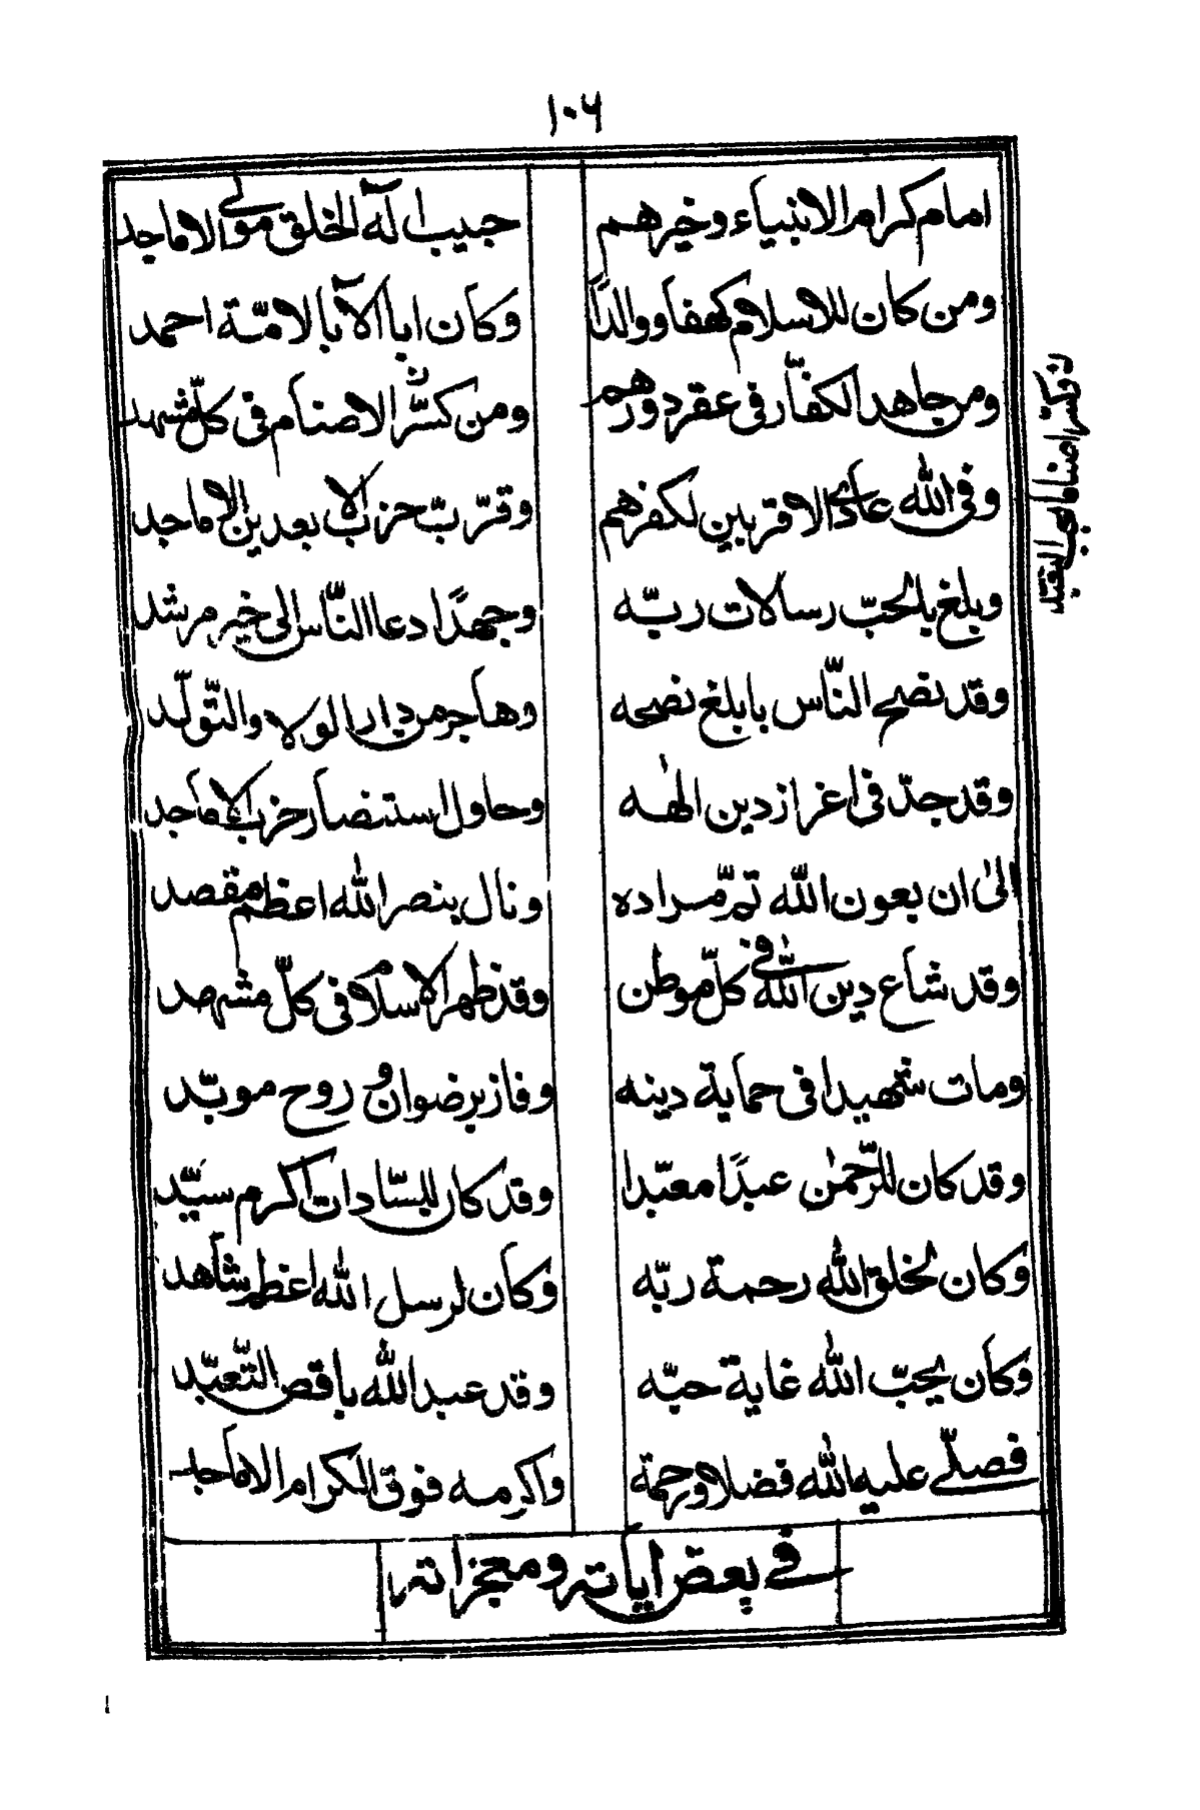 ١٠٦
امام كرام الانبياء وخيرهم حبيب اله الخلق مولى الاماجد
ومن كان للاسلام كهفا ووالدا وكان ابا الآبا لامّة احمد
ومن جاهد الكفّار فى عقر دورهم ومن كسّر الاصنام فى كلّ مشهد
وفى الله عادى الاقربين لكفرهم وقرّب حزب الابعدين الاماجد
وبلغ بالحبّ رسالات ربّه وجهدًا دعا النّاس الى خير مرشد
وقد نصح النّاس بابلغ نصحه وهاجر من دار الولا والتّولّد
وقد جدّ فى اغراز دين الهه وحاول استنصار حزب الاماجد
الى ان بعون الله تمّ مراده ونال بنصر الله اعظم مقصد
وقد شاع دين الله فى كلّ موطن وقد ظهر الاسلام فى كلّ مشهد
ومات شهيدا فى حماية دينه وفاز برضوان و روح موبّد
وقد كان للرّحمن عبدًا معبّدا وقد كان للسّادات اكرم سيّد
وكان لخلق الله رحمة ربّه وكان لرسل الله اعظم شاهد
وكان يحبّ الله غاية حبّه وقد عبد الله باقص التّعبّد
فصلّى عليه الله فضلا ورحمة واكرمه فوق الكرام الاماجد
فى بعض اياته ومعجزاته
وكسّر اصنام